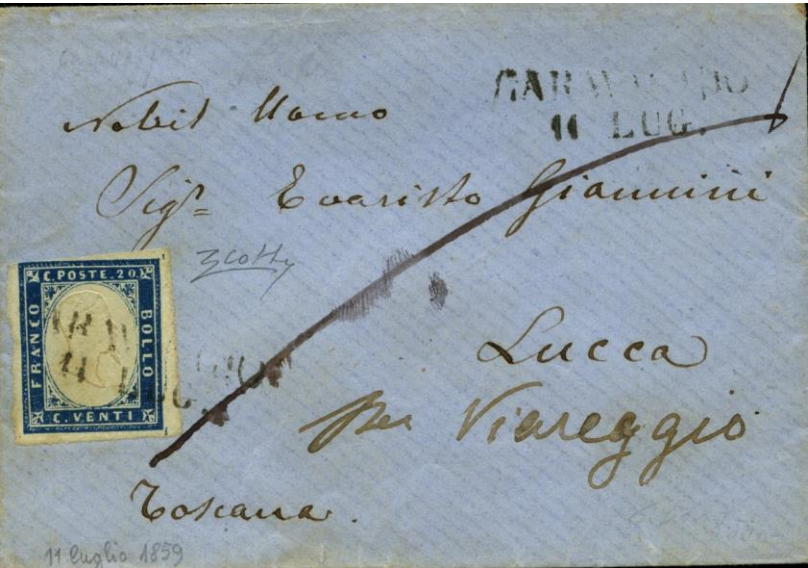 11 LUG.
Nobil Uomo
Sigr. Evaristo Giannini
C. POSTE. 20
FRANCO
BOLLO
C. VENTI
11 LUG.
Lucca
per Viareggio
Toscana.
11 luglio 1859